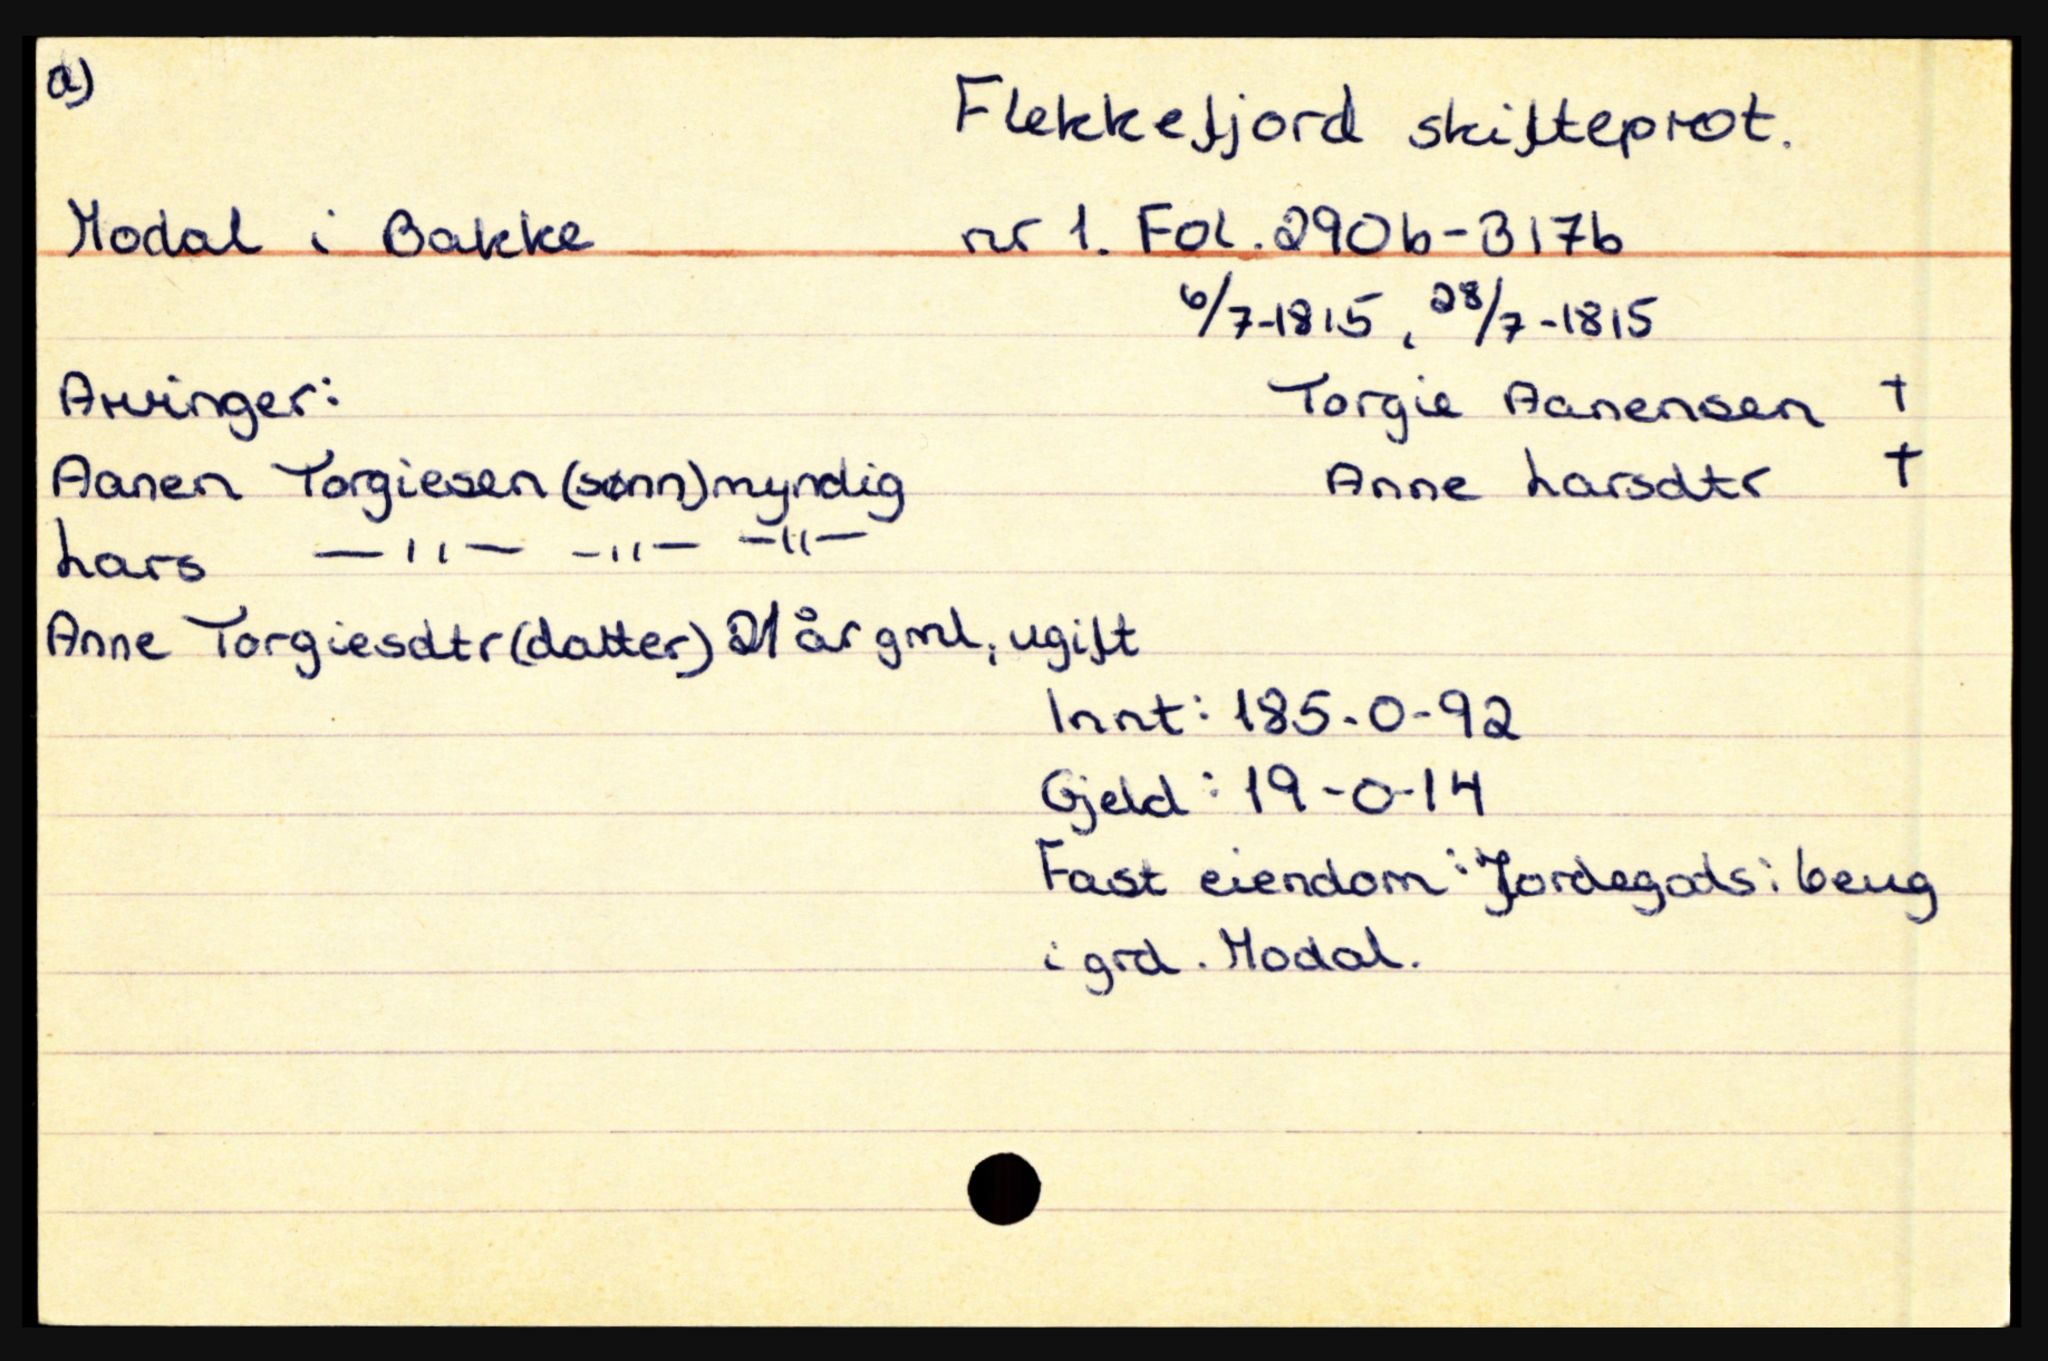 a)
Flekkefjord skifteprot.
Modal i Bakke nr 1. Fol. 290b-317b
6/7-1815, 28/7-1815
Arvinger: Torgie Aanensen †
Aanen Torgiesen (sønn) myndig Anne Larsdtr †
Lars —"— —"— —"—
Anne Torgiesdtr (datter) 21 år gml, ugift
Innt: 185-0-92
Gjeld: 19-0-14
Fast eiendom: Jordegods i beug
i grd. Modal.